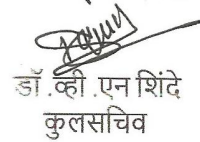 डॉ.व्ही.एन शिंदे
कुलसचिव